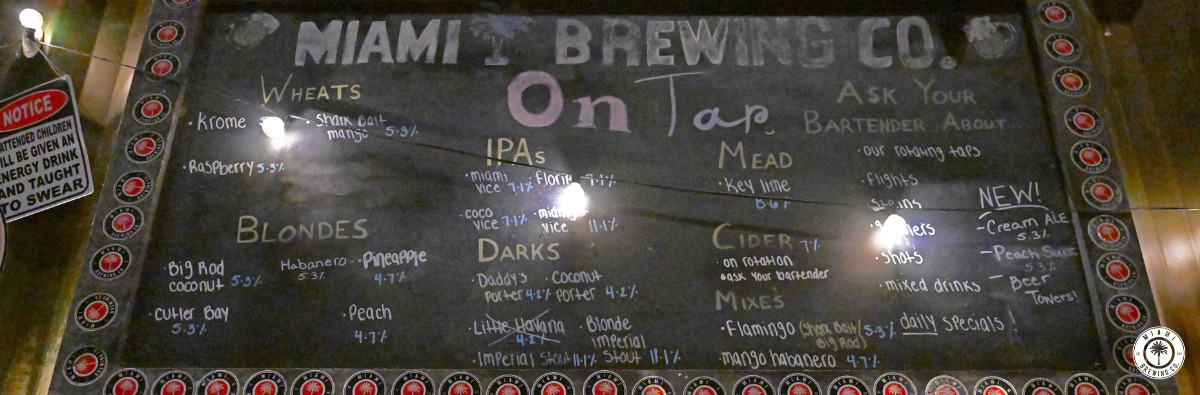 MIAMI BREWING CO.
On Tap
NOTICE
ATTENDED CHILDREN
WILL BE GIVEN AN
ENERGY DRINK
AND TAUGHT
TO SWEAR
WHEATS
• Krome
• Shark Bait
mango 5.3%
• Raspberry 5.3%
BLONDES
• Big Rod
coconut 5.3%
Habanero
5.3%
• Pineapple
4.7%
• Cutler Bay
5.3%
• Peach
4.7%
IPAs
• miami
vice 7.1%
• coco
vice 7.1%
vice 11.1%
DARKS
• Daddy's
porter 4.2%
• Coconut
porter 4.2%
• Little Havana
4.2%
• Blonde
imperial
stout 11.1%
• Imperial Stout 11.1%
MEAD
• Key lime
CIDER 7%
• on rotation
• ask your bartender
MIXES
• Flamingo (Shark Bait/
Big Rod) 5.3%
• mango habanero 4.7%
ASK YOUR
BARTENDER ABOUT
• our rotating taps
• flights
• shots
• mixed drinks
• daily specials!
NEW!
- Cream ALE
5.3%
- Peach
5.3%
- Beer
Towers!
MIAMI
BREWING CO.